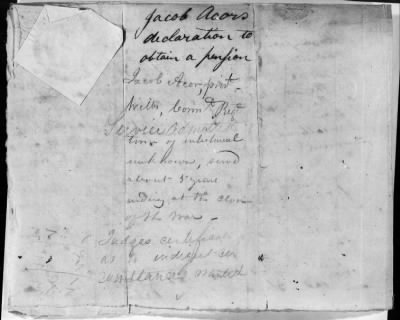 Jacob Acors
declaration to
obtain a pension
Jacob Acors, privt
Service admitted
time of inlistment
unknown, served
about 5 years
ending at the close
of the War -
Judges certificate
as to indigent cir
cumstances wanted